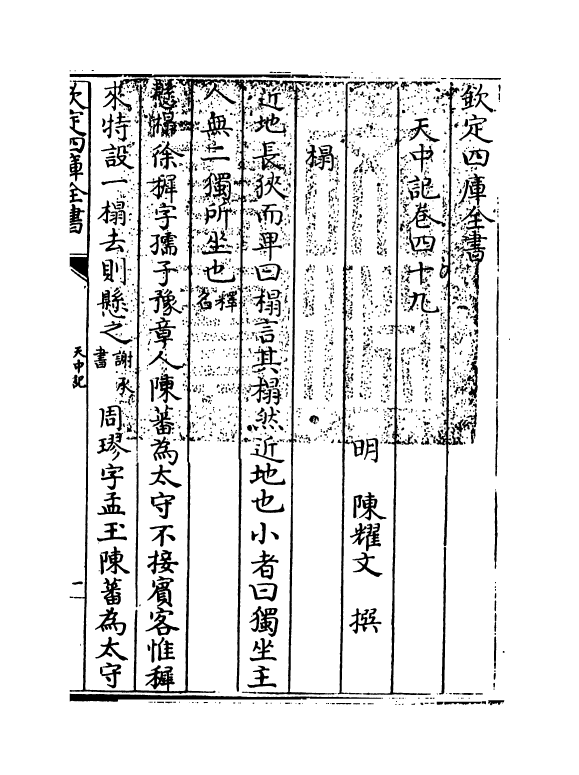 欽定四庫全書
天中記卷四十九
明 陳耀文 撰
榻
近地長狹而卑曰榻言其榻然近地也小者曰獨坐主
人與二獨所坐也釋名
懸榻徐穉字孺子豫章人陳蕃為太守不接賓客惟穉
來特設一榻去則懸之謝承書 周璆字孟玉陳蕃為太守
欽定四庫全書
天中記
一